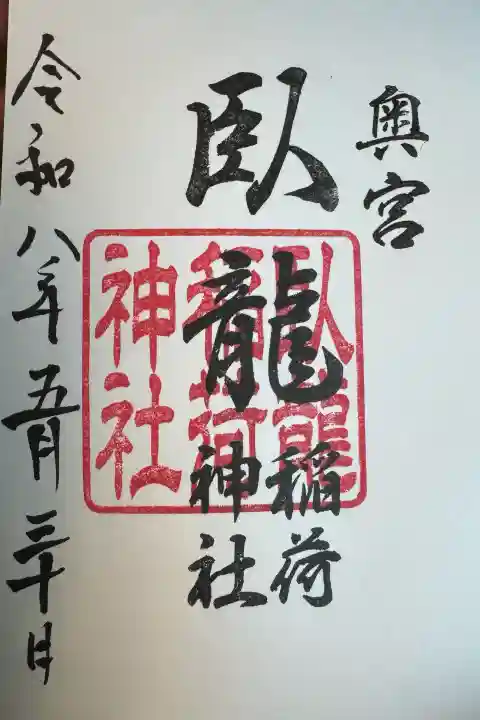 奥宮
臥龍
稲荷
神社
臥龍
稲荷
神社
令和八年五月三十日